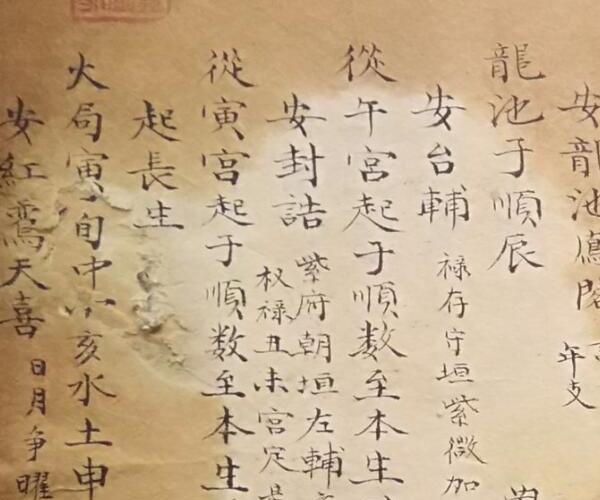 安龍池鳳閣
年支
龍池子順辰
安台輔
祿存守垣紫微加
從午宮起子順数至本生
安封誥
紫府朝垣左輔
权祿丑未宮定
從寅宮起子順数至本生
起長生
火局寅旬中小亥水土申
安紅鸞天喜
日月争曜